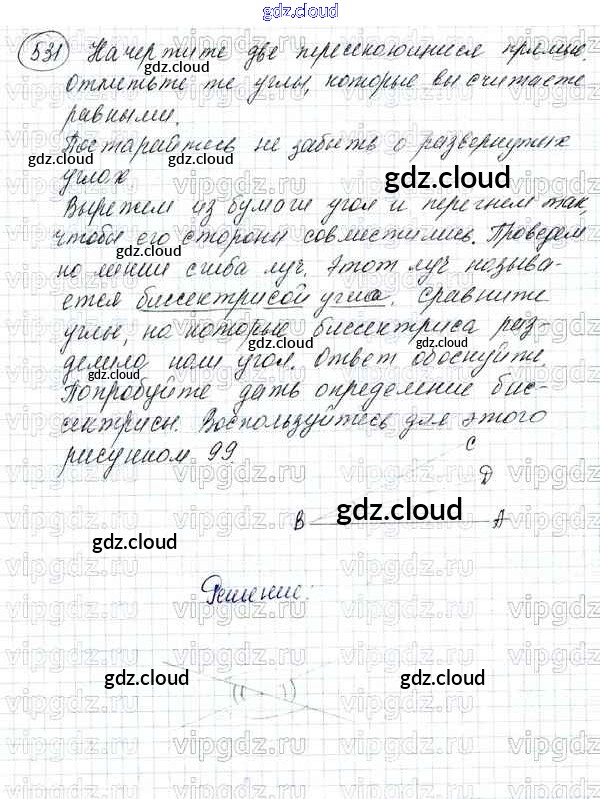 gdz.cloud
531 Начертите две пересекающиеся прямые.
Отметьте те углы, которые вы считаете
равными.
Постарайтесь не забыть о развернутых
углах
Вырежем из бумаги угол и перегнем так,
чтобы его стороны совместились. Проведем
по линии сгиба луч. Этот луч называ-
ется биссектрисой угла. Сравните
углы, на которые биссектриса раз-
делила наш угол. Ответ обоснуйте.
Попробуйте дать определение бис-
сектрисы. Воспользуйтесь для этого
рисунком 99
C
D
B A
Решение:
gdz.cloud
gdz.cloud
gdz.cloud
gdz.cloud
gdz.cloud
gdz.cloud
gdz.cloud
gdz.cloud
gdz.cloud
gdz.cloud
gdz.cloud
gdz.cloud